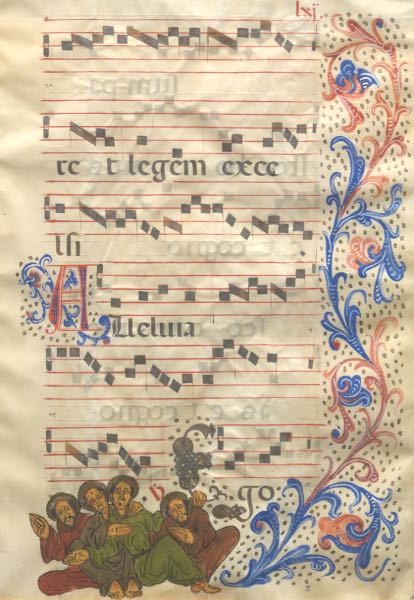 lxij.
te t legem exce
lsi
Alleluia
V Ego